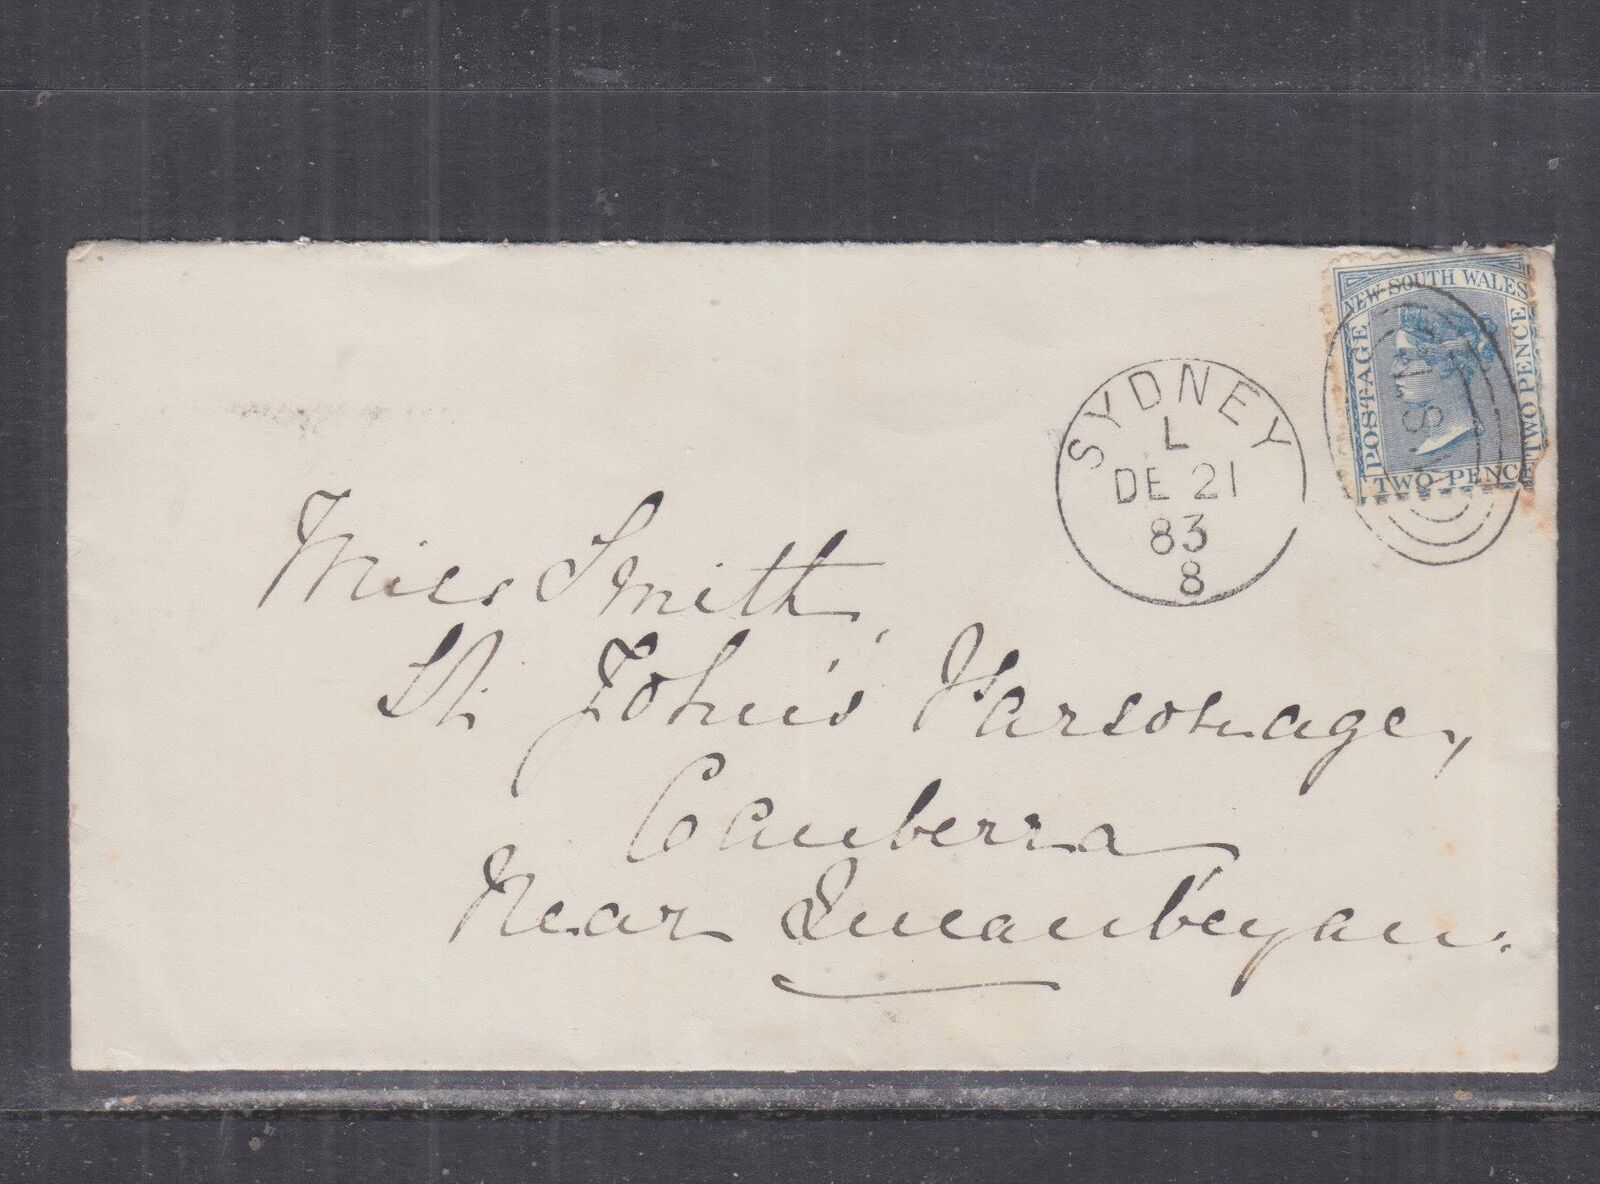 NEW SOUTH WALES
POSTAGE
TWO PENCE
TWO PENCE
NSW
SYDNEY
L
DE 21
83
8
Miss Smith,
St. John's Parsonage,
Canberra
Near Queanbeyan.